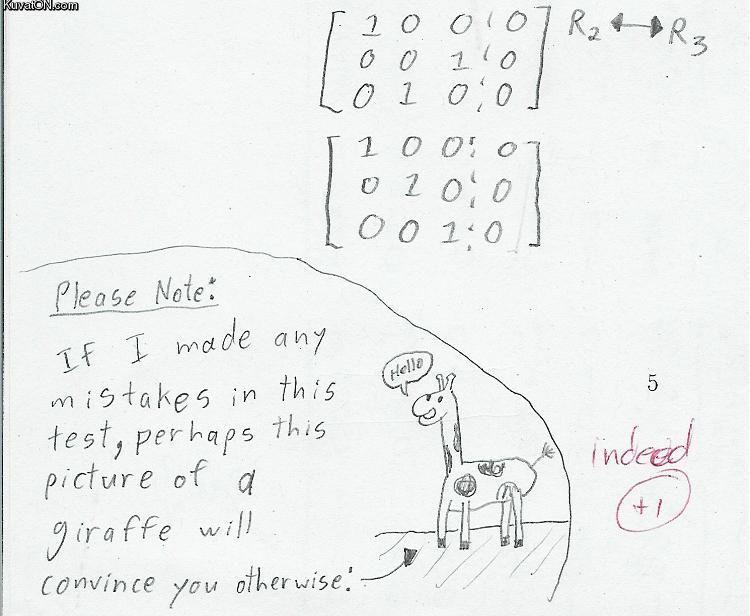 KuvatON.com
1 0 0 ¦ 0
0 0 1 ¦ 0
0 1 0 ¦ 0
R₂ ↔ R₃
1 0 0 ¦ 0
0 1 0 ¦ 0
0 0 1 ¦ 0
Please Note:
If I made any
mistakes in this
test, perhaps this
picture of a
giraffe will
convince you otherwise:
Hello
5
indeed
+1